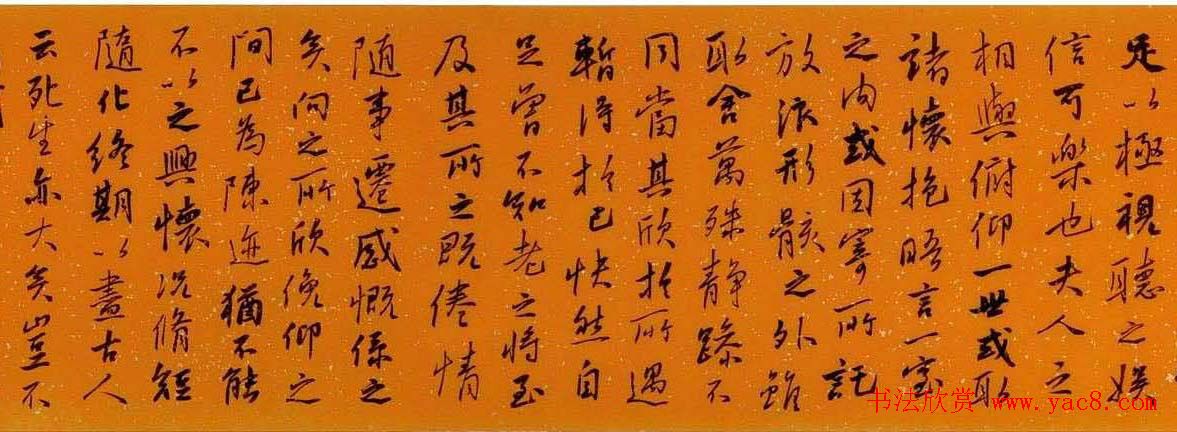 足以極視聽之娛
信可樂也夫人之
相與俯仰一世或取
諸懷抱晤言一室
之內或因寄所託
放浪形骸之外雖
取舍萬殊靜躁不
同當其欣於所遇
暫得於己快然自
足曾不知老之將至
及其所之既倦情
隨事遷感慨係之
矣向之所欣俛仰之
間已為陳迹猶不能
不以之興懷況脩短
隨化終期以盡古人
云死生亦大矣豈不
书法欣赏 www.yac8.com